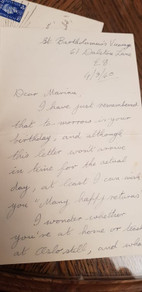 St. Bartholomew's Vicarage
61 Dalston Lane
E.8
4/9/40
Dear Marian
I have just remembered
that to-morrow is your
birthday, and although
this letter won't arrive
in time for the actual
day, at least I can wish
you "Many happy returns
I wonder whether
you're at home or
at, and